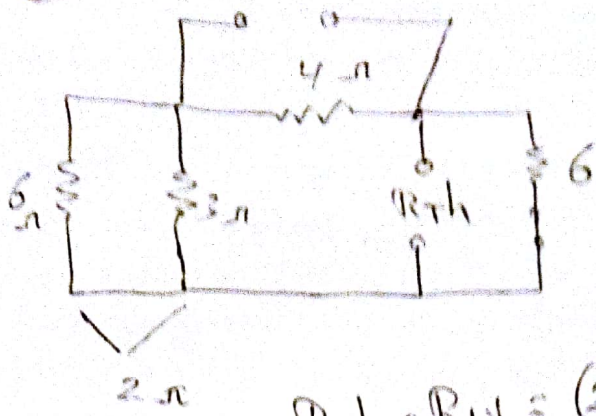 4 Ω
6 Ω
3 Ω
Rth
6
2 Ω